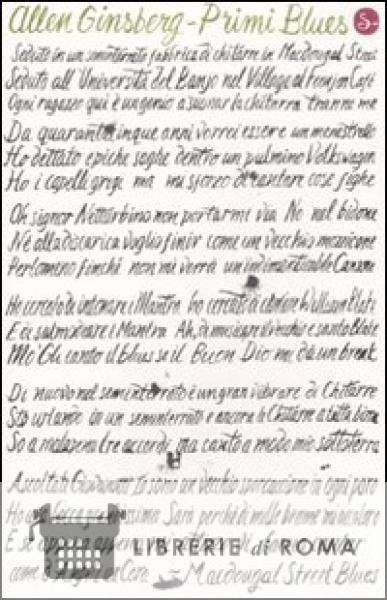 Allen Ginsberg - Primi Blues S
Seduto in un seminterrato fabbrica di chitarre in Macdougal Street
Seduto all'Università del Banjo nel Village al Feenjon Café
Ogni ragazzo qui è un genio a suonar la chitarra tranne me
Da quarantacinque anni vorrei essere un menestrello
Ho dettato epiche saghe dentro un pulmino Volkswagen
Ho i capelli grigi ma mi sforzo di cantare cose fighe
Oh signor Netturbino non portarmi via No nel bidone
Né alla discarica voglio finir come un vecchio moccione
Perlomeno finché non mi verrà un'indimenticabile Canzone
Ho cercato di intonare i Mantra ho cercato di William Blake
E di salmodiare i Mantra Ah, di musicare il vecchio e santo Blake
Mo' Gli canto il blues se il Buon Dio mi dà un break
Di nuovo nel seminterrato è un gran vibrare di Chitarre
Sto urlando in un seminterrato e ancora le Chitarre a tutta birra
So a malapena tre accordi ma canto a modo mio sottoterra
Ascoltate Giovanotti Io sono un vecchio sporcaccione in ogni paro
Ho una
E se
come Coro. ~ Macdougal Street Blues
LIBRERIE di ROMA